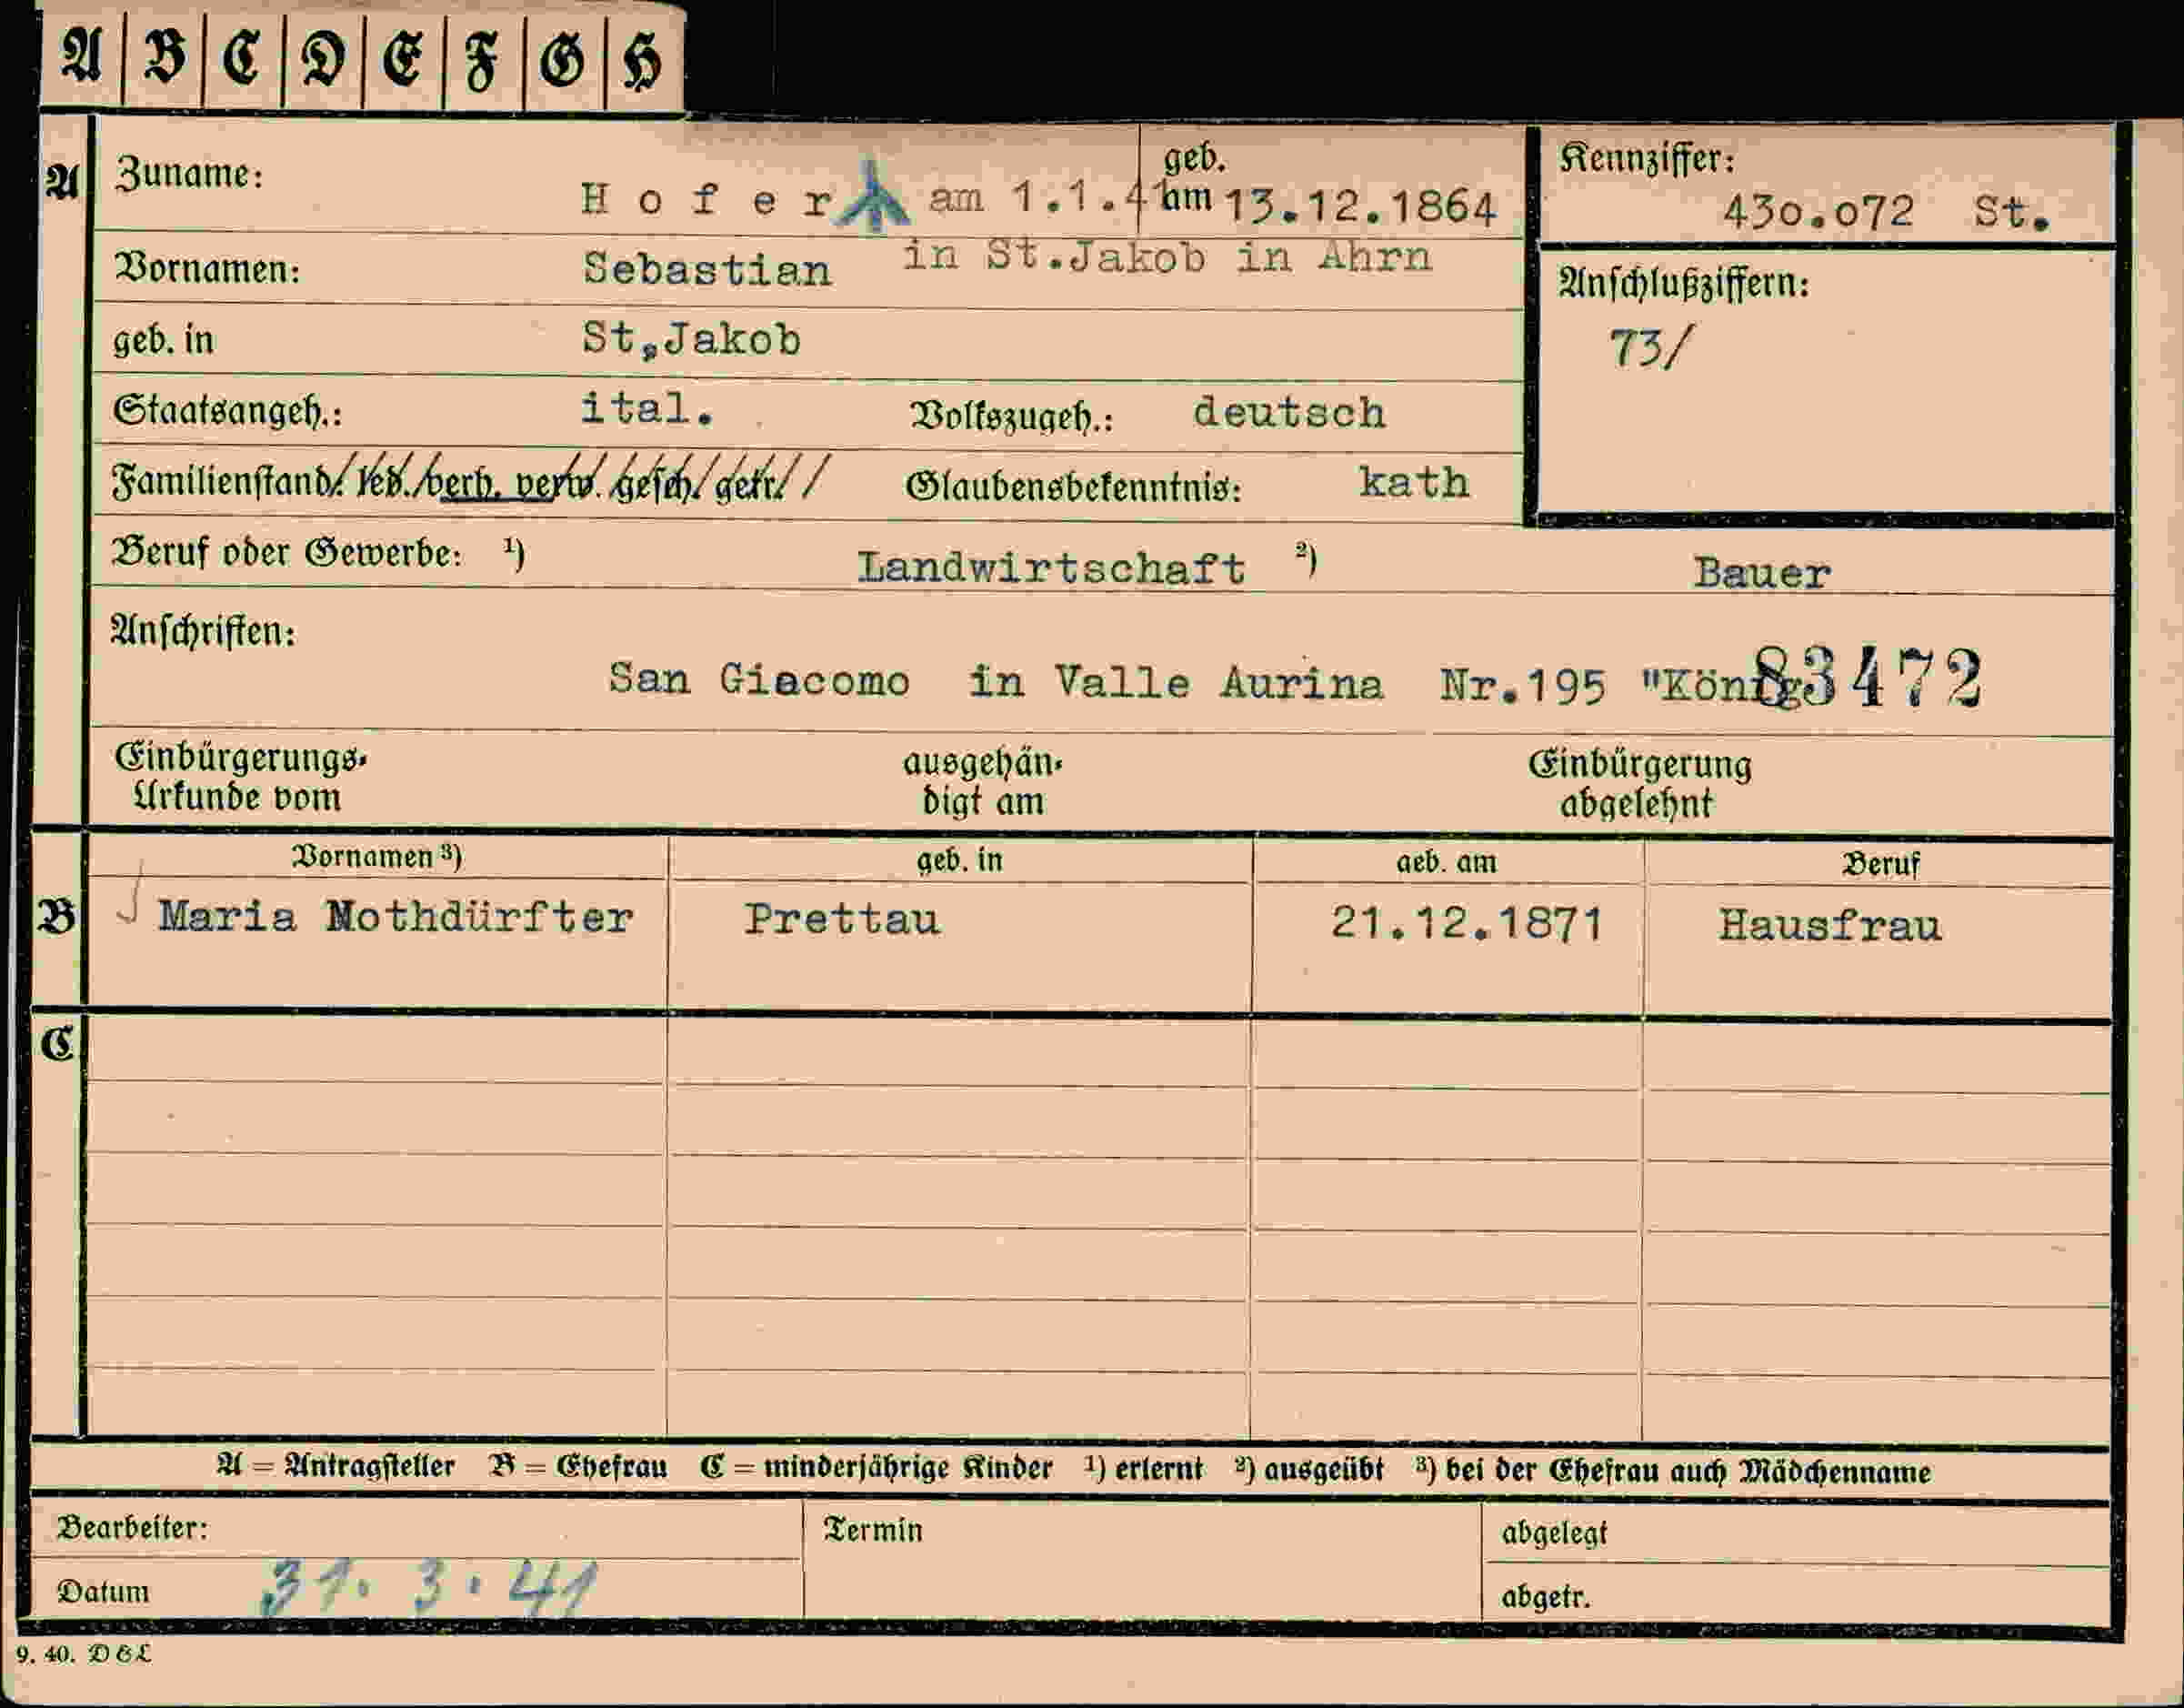 A B C D E F G H
A
Zuname: Hofer am 1.1.41 geb. am 13.12.1864
Kennziffer: 430.072 St.
Vornamen: Sebastian in St.Jakob in Ahrn
Anschlußziffern:
73/
geb. in St.Jakob
Staatsangeh.: ital. Volkszugeh.: deutsch
Familienstand: led. verh. verw. gesch. getr. Glaubensbekenntnis: kath
Beruf oder Gewerbe: ¹) Landwirtschaft ²) Bauer
Anschriften:
San Giacomo in Valle Aurina Nr.195 83472
Einbürgerungs- ausgehän- Einbürgerung
Urkunde vom digt am abgelehnt
Vornamen ³) geb. in geb. am Beruf
B Maria Nothdürfter Prettau 21.12.1871 Hausfrau
C
A = Antragsteller B = Ehefrau C = minderjährige Kinder ¹) erlernt ²) ausgeübt ³) bei der Ehefrau auch Mädchenname
Bearbeiter: Termin abgelegt
Datum 31. 3. 41 abgetr.
9. 40. D & L